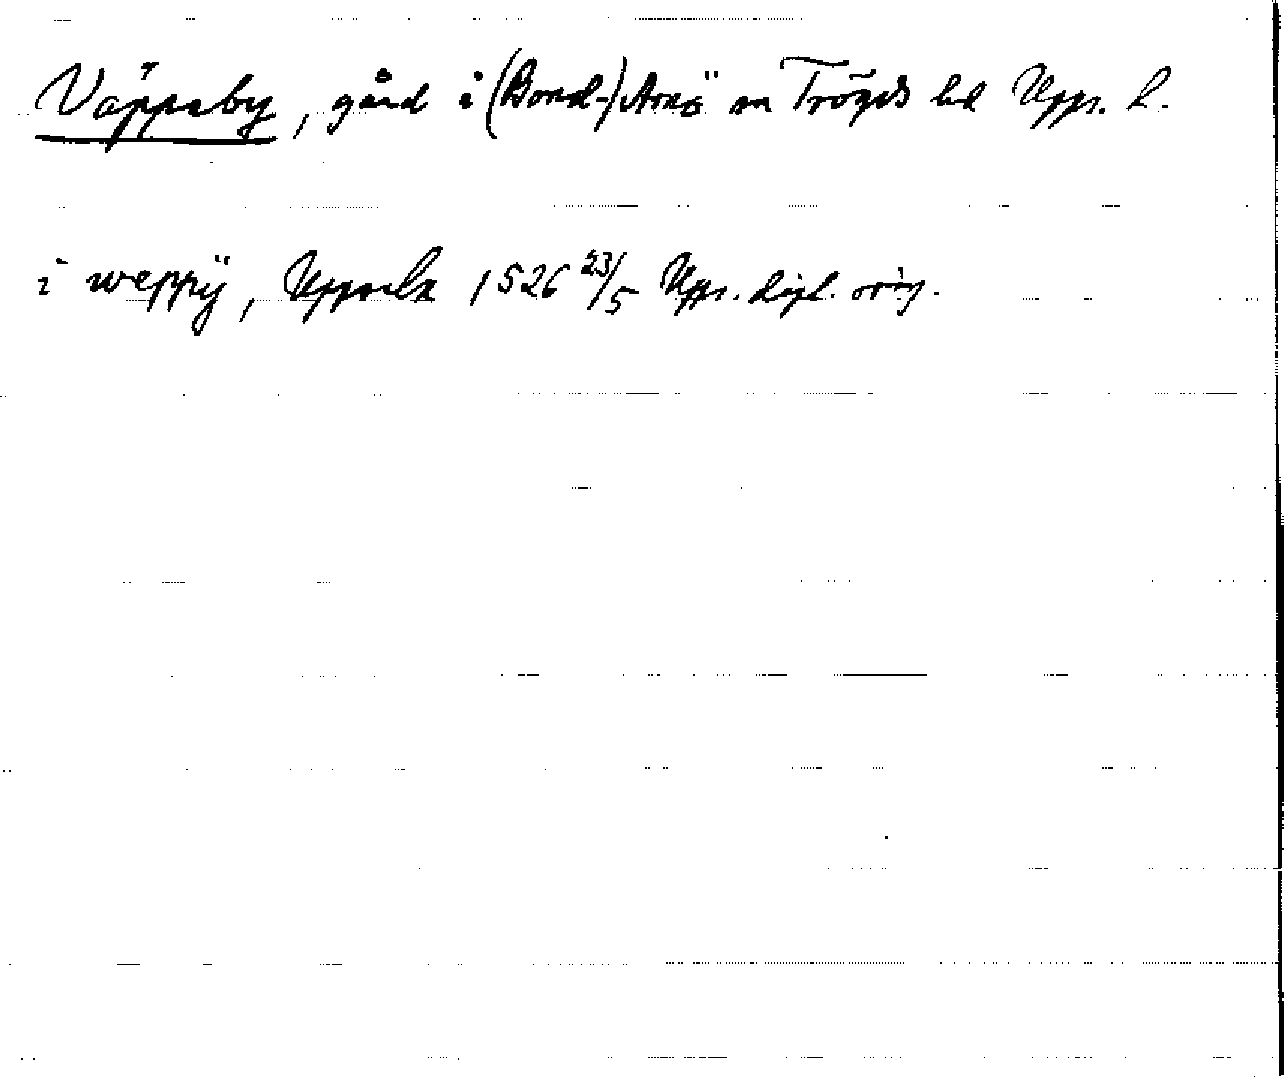 Väppeby, gård i (Bond-)Arnö sn Trögds hd Upps. l.
i weppÿ, Uppsala 1526 23/5 Upps. dipl. orig.